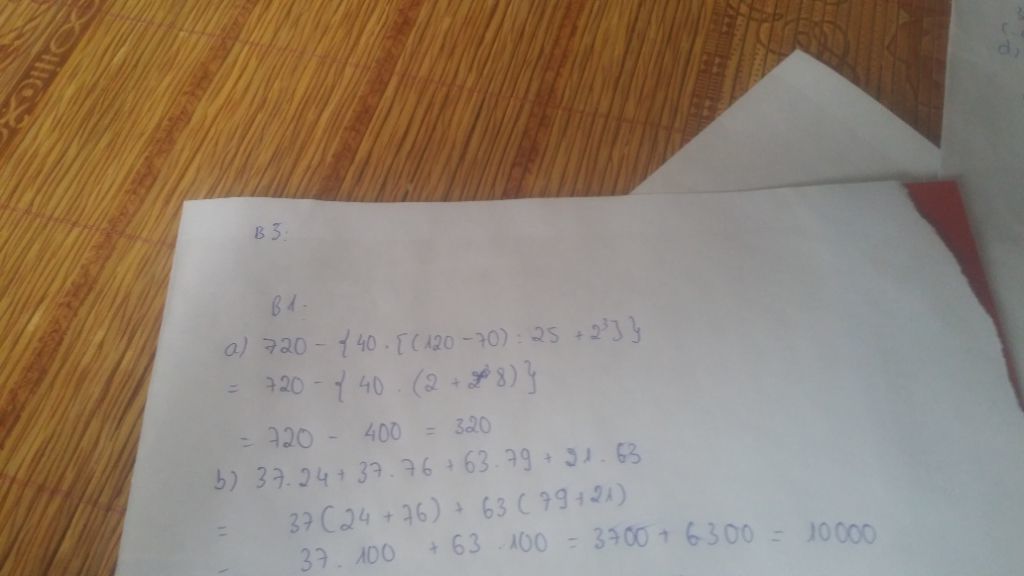 B3:
B1:
a) 720 - { 40 . [(120 - 70) : 25 + 2³] }
= 720 - { 40 . (2 + 8) }
= 720 - 400 = 320
b) 37.24 + 37.76 + 63.79 + 21.63
= 37(24 + 76) + 63(79 + 21)
= 37.100 + 63.100 = 3700 + 6300 = 10000